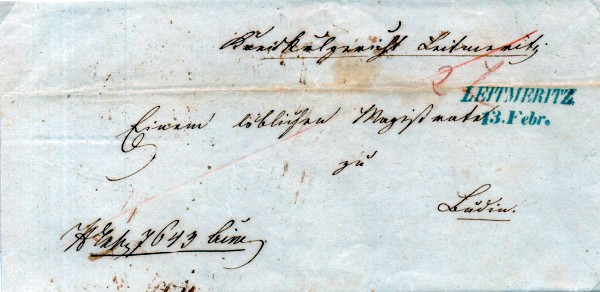 Kreiskalgericht Leitmeritz.
LEITMERITZ.
13. Febr.
Einem löblichen Magistrate
zu
Budin.
7643